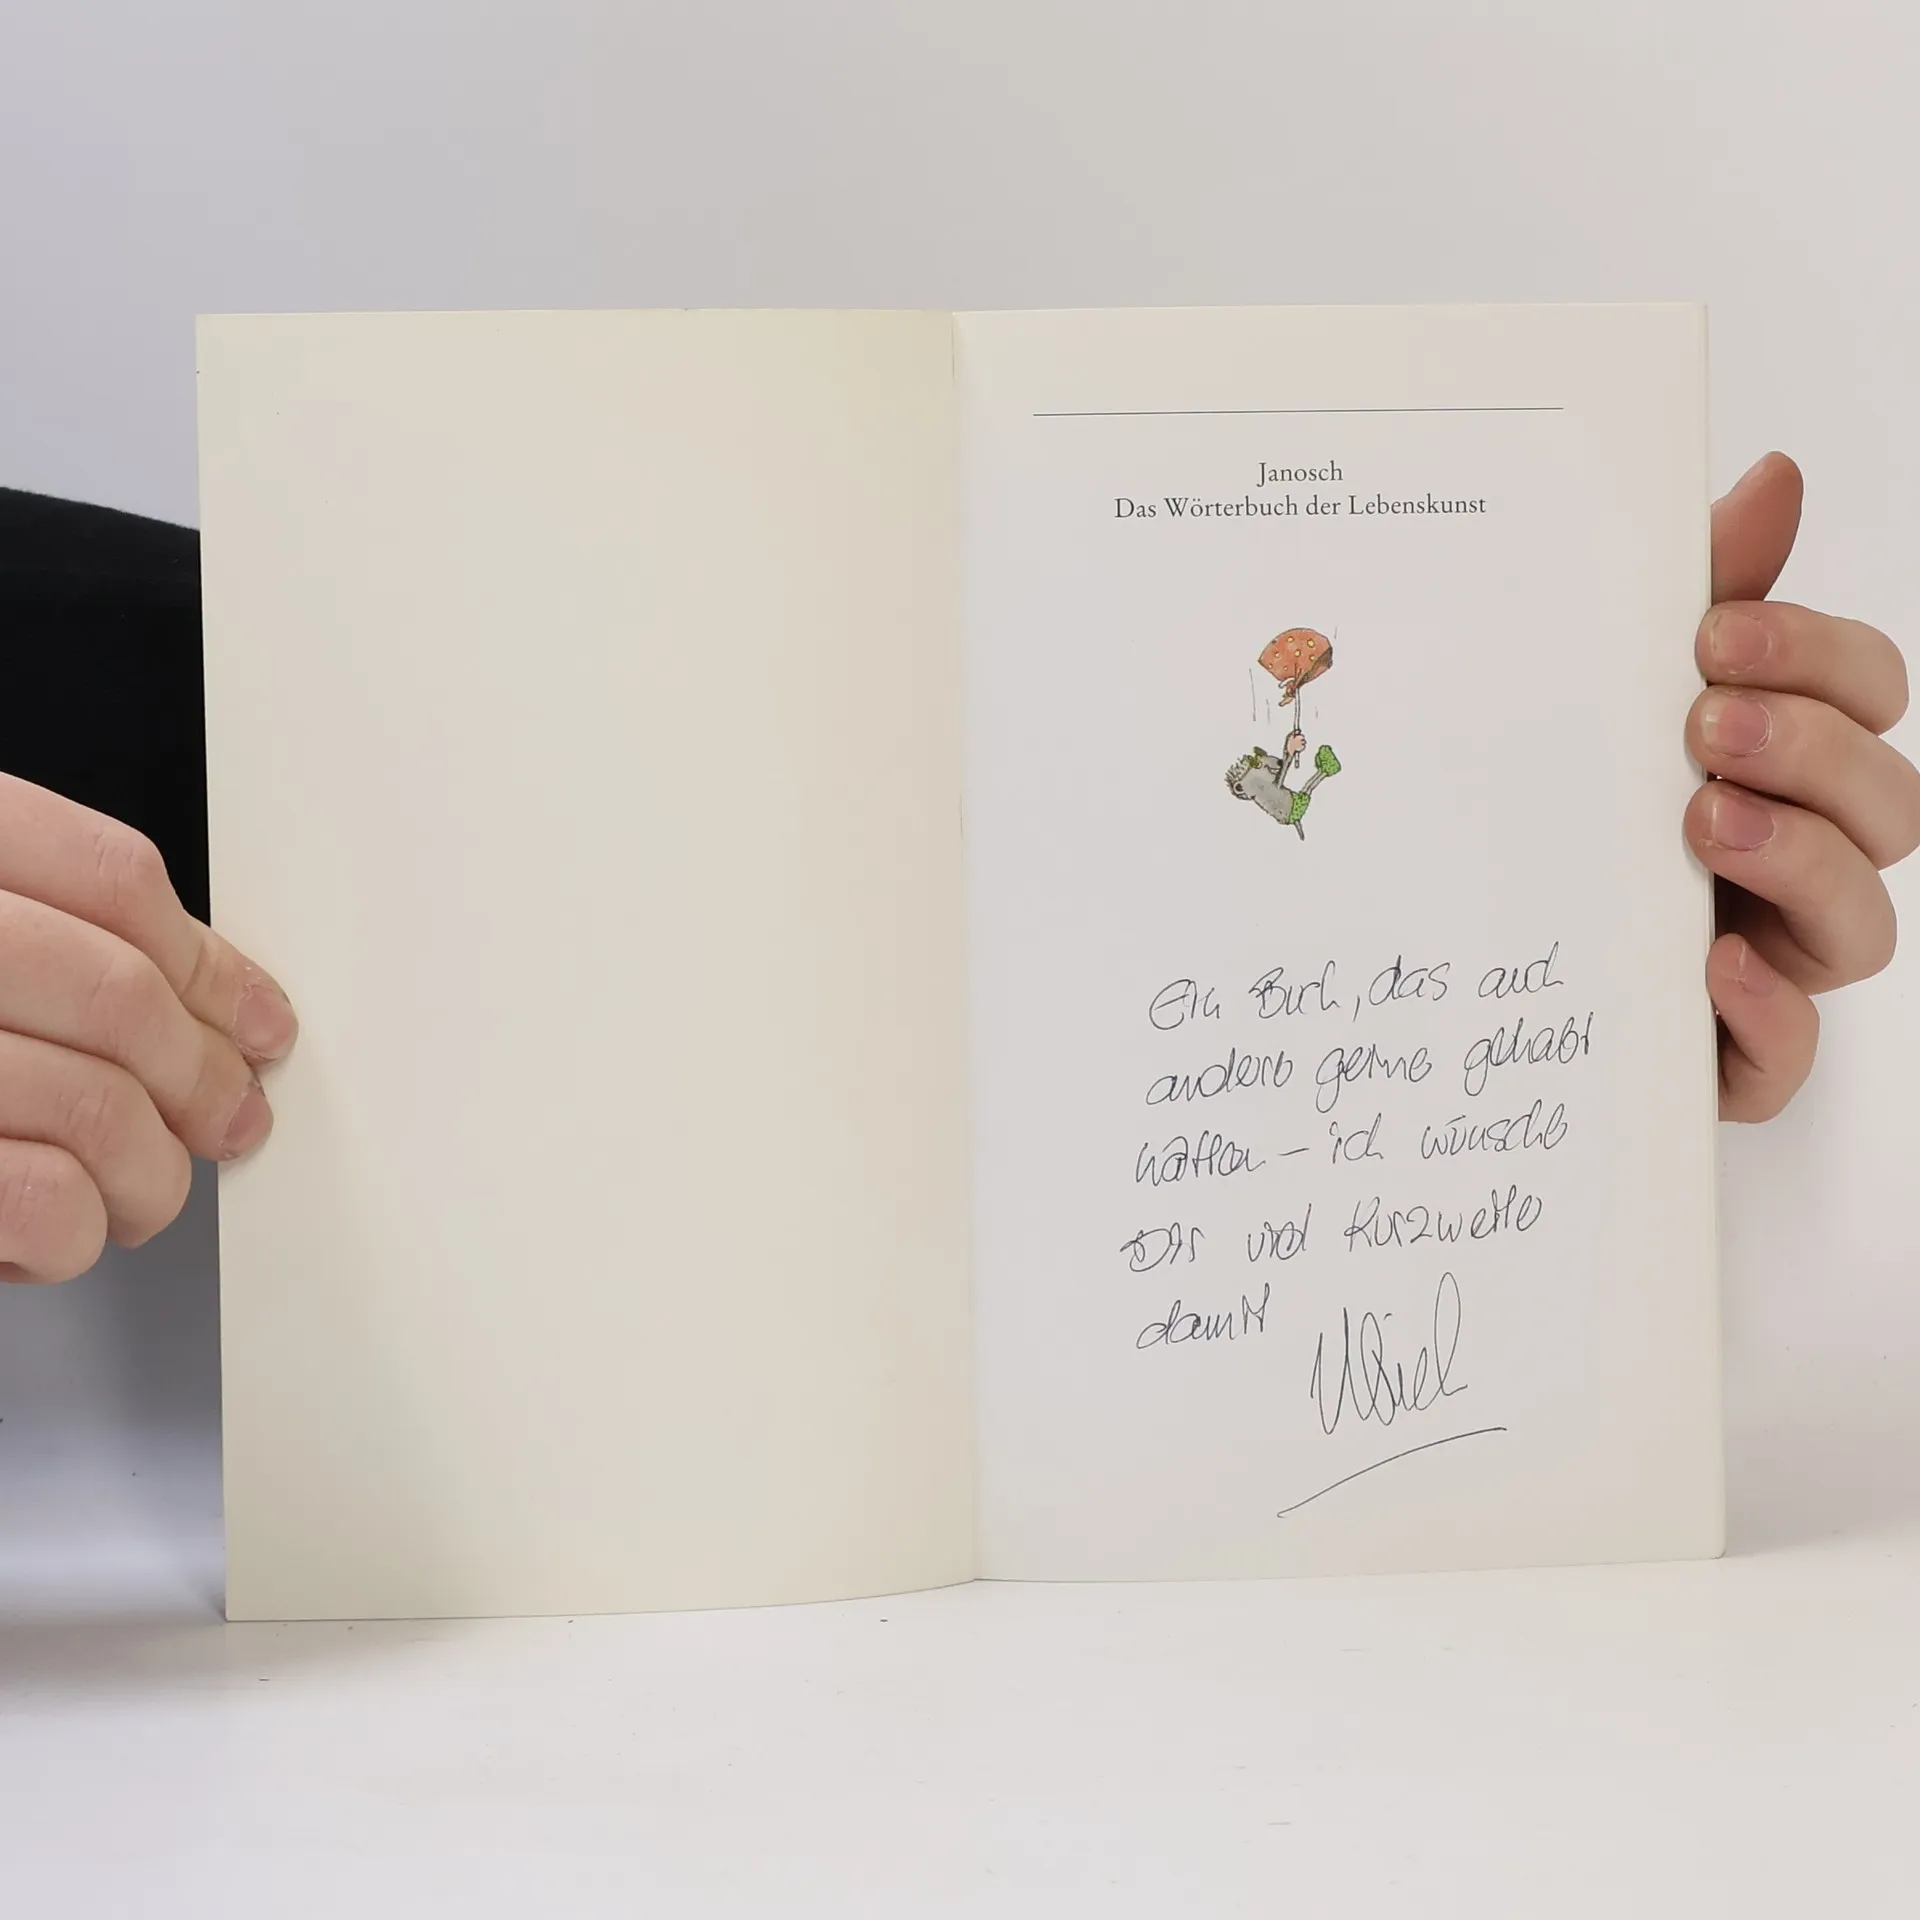 Janosch
Das Wörterbuch der Lebenskunst
Ein Buch, das auch
andere gerne gehabt
hätten – ich wünsche
Dir viel Kurzweile
damit